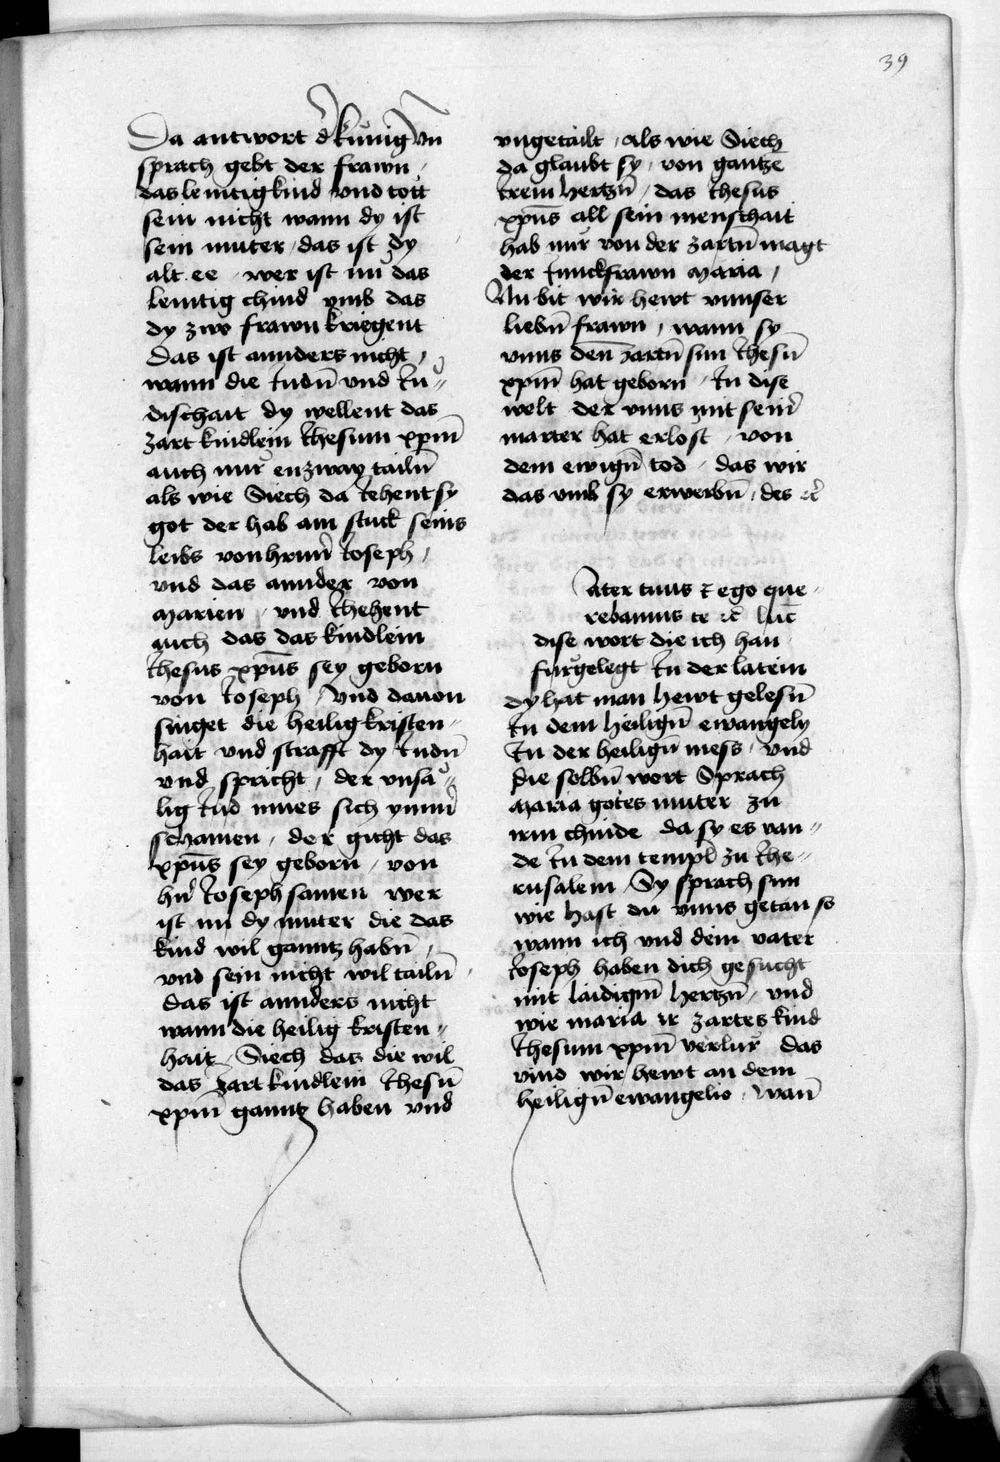 39
Da antwort d̕ kůnig vn
sprach gebt der frawn /
das lemtig kind vnd tott
sein nicht wann dy ist
sein muter / das ist dy
alt ee / wer ist nů das
lemtig chind vmb das
dy zwo frawn kriegent
Das ist annders nicht /
wann die Judn̄ vnd Ju̎ //
dischait dy wellent das
zart kindlein Jhesum xpm̄
auch nůr enzway tailn̄
als wie Siech da Jehent sy
got der hab ain stuck seins
leibs von hrnn̄ Joseph /
vnd das annder von
Marien / vnd Jhehent
auch das das kindlein
Jhesus xpūs sey geborn
von Joseph / Vnd dauon
singet die heilig kristen //
hait vnd strafft dy Judn̄
vnd spricht / der vnsa̎ //
lig Jud mues sich ymm̄
schamen / der gicht das
xpūs sey geborn / von
hn̄ Joseph samen wer
ist nu dy muter die das
kind wil ganntz habn̄ /
vnd sein nicht wil tailn̄ /
das ist annders nicht
wann die heilig kristen //
hait / Siech das die wil
das zart kindlein Jhesū
xpm̄ ganntz haben vnd
vngetailt / als wie Siech
da glaubt sy / von gantze
trem hertzn̄ / das Jhesus
xpūs all sein menschait
hab nůr von der zartn̄ magt
der Junckfrawn Maria /
Nu bit wir hewt vnnser
liebn̄ frawn / wann sy
vnns den zartn̄ sun Jhesū
xpm̄ hat geborn / In dise
welt der vnns mit sein̄
marter hat erlost / von
dem ewign̄ tod / das wir
das vmb sy erwerbn̄ / des ꝛc̄
Ater tuus ⁊ ego que //
rebamus te ꝛc̄ luc̄
dise wort die ich han
fůrgelegt In der latein
dy hat man hewt gelesn̄
In dem heilign̄ ewangely
In der heilign̄ mess / vnd
die selbn̄ wort Sprach
Maria gotes muter zu
irm chinde da sy es van //
de In dem templ̄ zu Jhe //
rusalem Sy sprach sun
wie hast du vnns getan so
wann ich vnd dein vater
Joseph haben dich gesucht
mit laidigm̄ hertzn̄ / vnd
wie maria ir zartes kind
Jhesum xpm̄ verlůr das
vind wir hewt an dem
heilign̄ ewangelio / wan̄